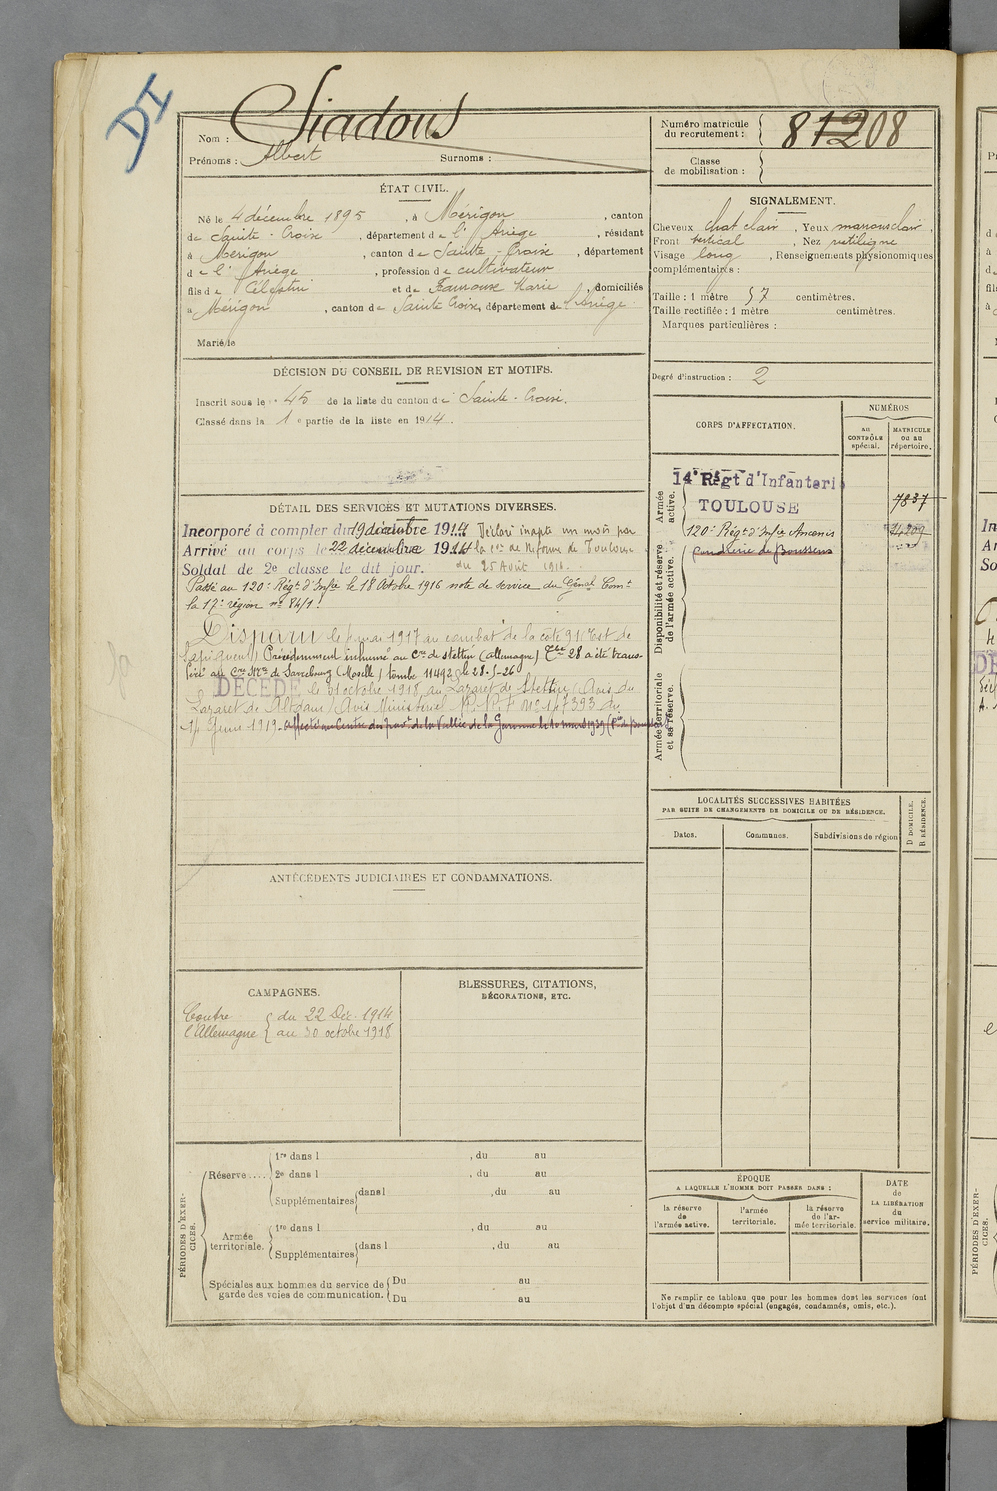 DI
Nom : Siadous
Prénoms : Albert Surnoms :
Numéro matricule du recrutement : 81208
Classe de mobilisation :
ÉTAT CIVIL.
Né le 4 décembre 1895, à Mérigon, canton
de Sainte-Croix, département de l'Ariège, résidant
à Mérigon, canton de Sainte Croix, département
de l'Ariège, profession de cultivateur
fils de Célestin et de Marie, domiciliés
à Mérigon, canton de Sainte Croix, département de l'Ariège
Marié le
SIGNALEMENT.
Cheveux chat clair, Yeux marrons clair,
Front vertical, Nez rectiligne
Visage long, Renseignements physionomiques
complémentaires :
Taille : 1 mètre 57 centimètres.
Taille rectifiée : 1 mètre centimètres.
Marques particulières :
Degré d'instruction : 2
DÉCISION DU CONSEIL DE REVISION ET MOTIFS.
Inscrit sous le n° 45 de la liste du canton de Sainte-Croix.
Classé dans la 1e partie de la liste en 1914.
CORPS D'AFFECTATION.
NUMÉROS
au CONTRÔLE spécial.
MATRICULE ou au répertoire.
Armée active.
14e Régt d'Infanterie
TOULOUSE
7837
Disponibilité et réserve de l'armée active.
120e Régt d'Infie Ancenis
poudrerie de Boussens
Armée territoriale et sa réserve.
DÉTAIL DES SERVICES ET MUTATIONS DIVERSES.
Incorporé à compter du 19 décembre 1914 Déclaré inapte un mois par
Arrivé au corps le 22 décembre 1914 la Con de Réforme de Toulouse
Soldat de 2e classe le dit jour. du 25 Août 1916.
Passé au 120e Régt d'Infie le 18 Octobre 1916 note de service du Génal Comt
la 17e région n° 84/1.
Disparu le mai 1917 au combat de la côte 91 Est de
Sapigneul, Précédemment inhumé au Cre de Stettin (Allemagne) Tbe 28 a été trans-
féré au Cre Mre de Sarrebourg (Moselle) tombe 11492 le 28-5-26
DÉCÉDÉ le 31 octobre 1918 au Lazaret de Stettin (Avis du
Lazaret de Altdam) Avis Ministériel du
14 Janv. 1919. affecté au Centre des poud. de la Vallée de la Garonne le 10 mars 1939
LOCALITÉS SUCCESSIVES HABITÉES
PAR SUITE DE CHANGEMENTS DE DOMICILE OU DE RÉSIDENCE.
Dates. Communes. Subdivisions de région
D DOMICILE.
R RÉSIDENCE.
ANTÉCÉDENTS JUDICIAIRES ET CONDAMNATIONS.
CAMPAGNES.
Contre du 22 Déc. 1914
l'Allemagne au 30 octobre 1918
BLESSURES, CITATIONS,
DÉCORATIONS, ETC.
PÉRIODES D'EXERCICES.
Réserve....
1re dans l , du au
2e dans l , du au
Supplémentaires dans l , du au
Armée territoriale.
1re dans l , du au
Supplémentaires dans l , du au
Spéciales aux hommes du service de Du au
garde des voies de communication. Du au
ÉPOQUE
A LAQUELLE L'HOMME DOIT PASSER DANS :
la réserve de l'armée active.
l'armée territoriale.
la réserve de l'armée territoriale.
DATE de LA LIBÉRATION du service militaire.
Ne remplir ce tableau que pour les hommes dont les services font
l'objet d'un décompte spécial (engagés, condamnés, omis, etc.).